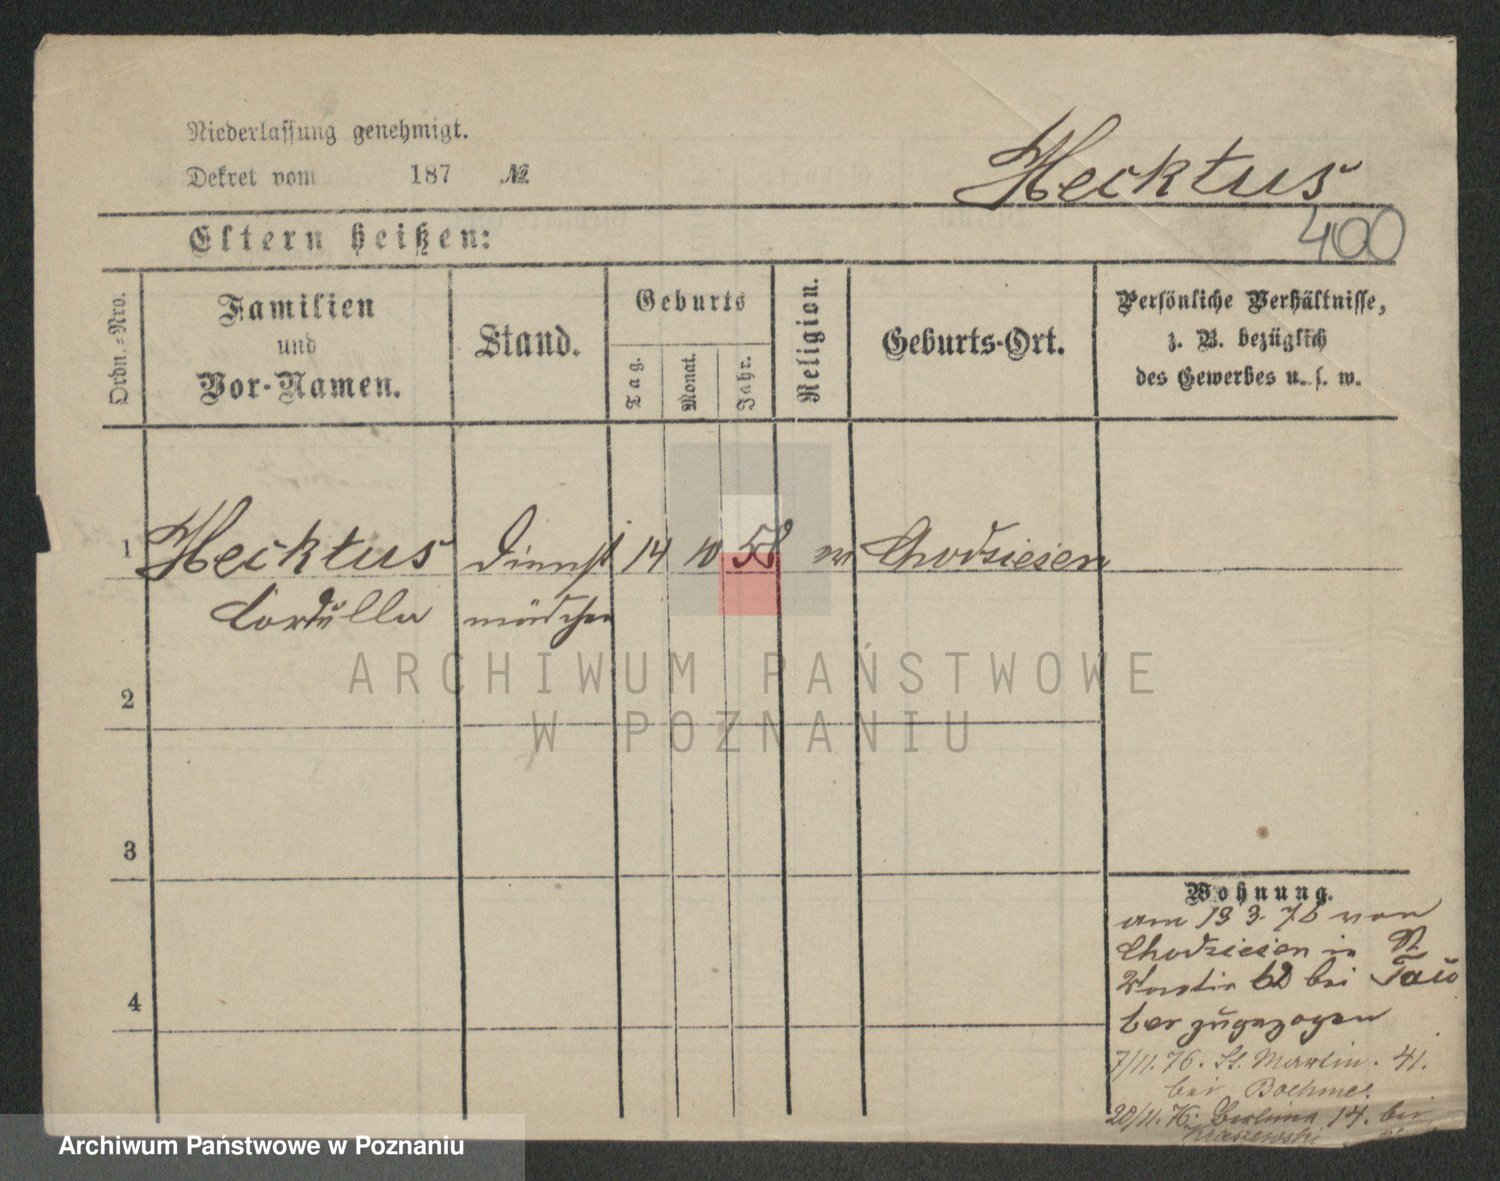 Niederlassung genehmigt.
Dekret vom 187 №
Hecktus
400
Eltern heißen:
Ordn.-Nro.
Familien
und
Vor-Namen.
Stand.
Geburts
Tag.
Monat.
Jahr.
Religion.
Geburts-Ort.
Persönliche Verhältnisse,
z. B. bezüglich
des Gewerbes u. s. w.
1 Hecktus Dienst 14 10 58 Chodziesen
Cordulla mädchen
ARCHIWUM PAŃSTWOWE
W POZNANIU
2
3
4
Wohnung.
am 13 3. 76 von
Chodziesen in St
Martin 62 bei Tau
ber zugezogen
7/11. 76. St. Martin. 41.
bei Boehme.
20/11. 76. 14. bei
Kraszewski
Archiwum Państwowe w Poznaniu